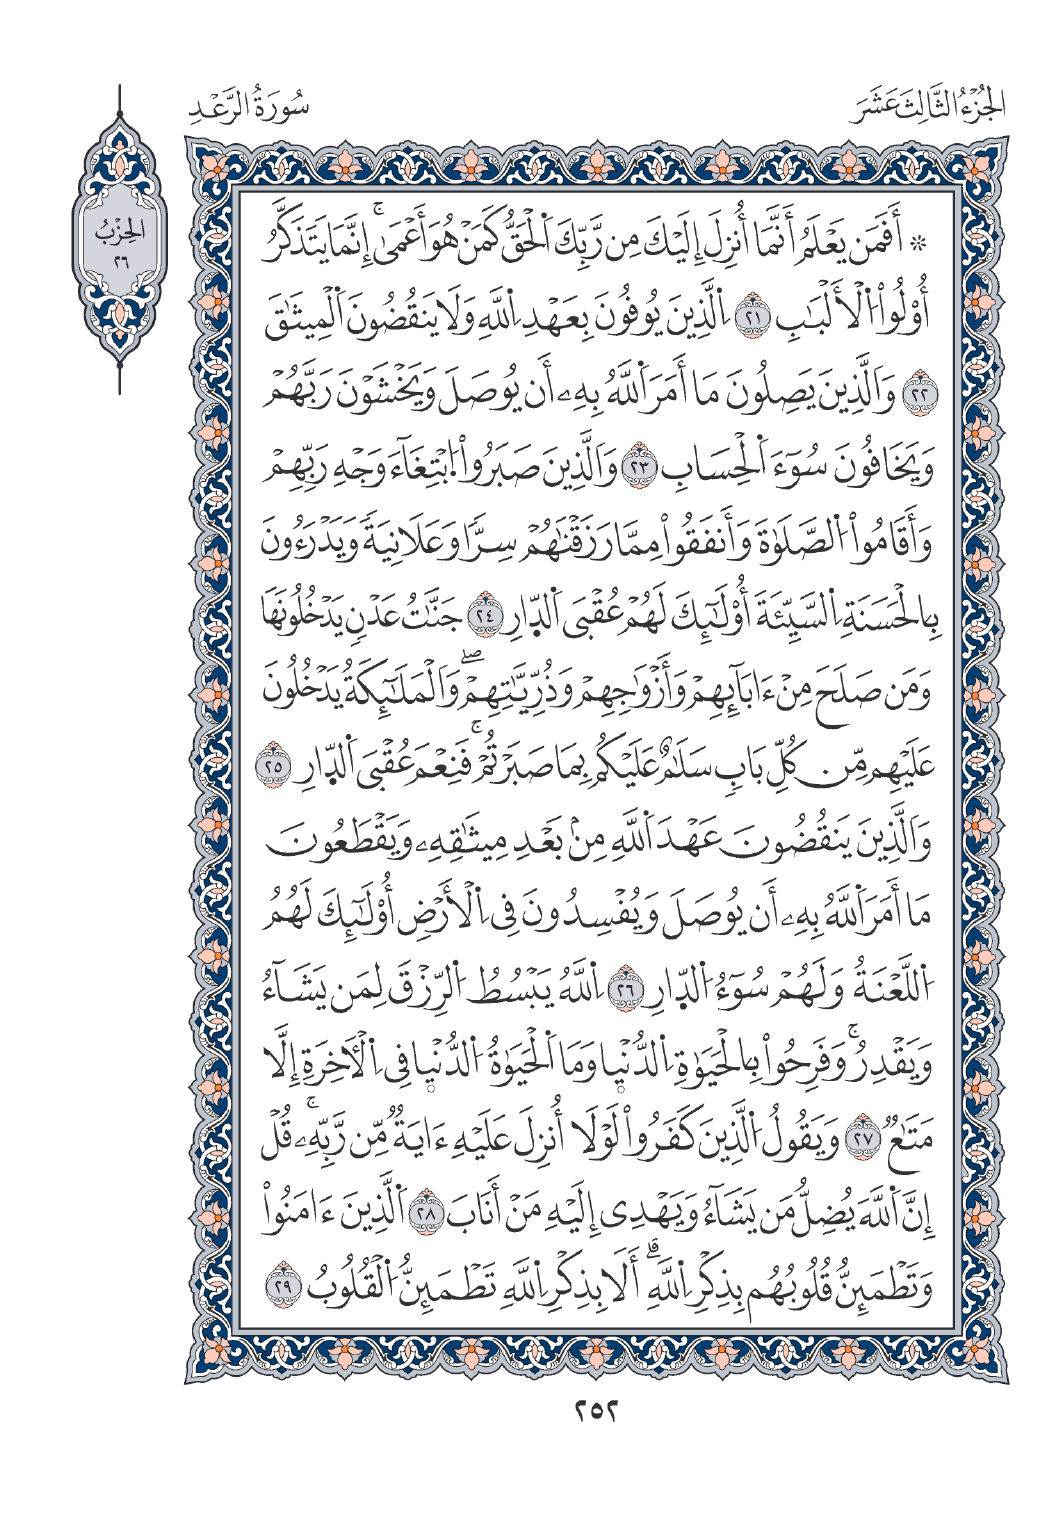 الجُزْءُ الثَّالِثَ عَشَرَ
سُورَةُ الرَّعْدِ
الحِزْبُ
٢٦
۞ أَفَمَن يَعْلَمُ أَنَّمَا أُنزِلَ إِلَيْكَ مِن رَّبِّكَ اَ۬لْحَقُّ كَمَنْ هُوَ أَعْمَىٰٓۚ إِنَّمَا يَتَذَكَّرُ
أُوْلُواْ اُ۬لْأَلْبَٰبِ ٢١ اِ۬لَّذِينَ يُوفُونَ بِعَهْدِ اِ۬للَّهِ وَلَا يَنقُضُونَ اَ۬لْمِيثَٰقَ
٢٢ وَاَلَّذِينَ يَصِلُونَ مَا أَمَرَ اَ۬للَّهُ بِهِۦ أَن يُوصَلَ وَيَخْشَوْنَ رَبَّهُمْ
وَيَخَافُونَ سُوٓءَ اَ۬لْحِسَابِ ٢٣ وَاَلَّذِينَ صَبَرُواْ اُ۪بْتِغَآءَ وَجْهِ رَبِّهِمْ
وَأَقَامُواْ اُ۬لصَّلَوٰةَ وَأَنفَقُواْ مِمَّا رَزَقْنَٰهُمْ سِرّٗا وَعَلَانِيَةٗ وَيَدْرَءُونَ
بِالْحَسَنَةِ اِ۬لسَّيِّئَةَ أُوْلَٰٓئِكَ لَهُمْ عُقْبَى اَ۬لدّ۪ارِ ٢٤ جَنَّٰتُ عَدْنٖ يَدْخُلُونَهَا
وَمَن صَلَحَ مِنْ ءَابَآئِهِمْ وَأَزْوَٰجِهِمْ وَذُرِّيَّٰتِهِمْۖ وَالْمَلَٰٓئِكَةُ يَدْخُلُونَ
عَلَيْهِم مِّن كُلِّ بَابٖ سَلَٰمٌ عَلَيْكُم بِمَا صَبَرْتُمْۚ فَنِعْمَ عُقْبَى اَ۬لدّ۪ارِ ٢٥
وَاَلَّذِينَ يَنقُضُونَ عَهْدَ اَ۬للَّهِ مِنۢ بَعْدِ مِيثَٰقِهِۦ وَيَقْطَعُونَ
مَا أَمَرَ اَ۬للَّهُ بِهِۦ أَن يُوصَلَ وَيُفْسِدُونَ فِى اِ۬لْأَرْضِ أُوْلَٰٓئِكَ لَهُمُ
اُ۬للَّعْنَةُ وَلَهُمْ سُوٓءُ اُ۬لدّ۪ارِ ٢٦ اِ۬للَّهُ يَبْسُطُ اُ۬لرِّزْقَ لِمَن يَشَآءُ
وَيَقْدِرُۚ وَفَرِحُواْ بِالْحَيَوٰةِ اِ۬لدُّنْي۪ا وَمَا اَ۬لْحَيَوٰةُ اُ۬لدُّنْي۪ا فِى اِ۬لْأٓخِرَةِ إِلَّا
مَتَٰعٞ ٢٧ وَيَقُولُ اُ۬لَّذِينَ كَفَرُواْ لَوْلَا أُنزِلَ عَلَيْهِ ءَايَةٞ مِّن رَّبِّهِۦۚ قُلْ
إِنَّ اَ۬للَّهَ يُضِلُّ مَن يَشَآءُ وَيَهْدِى إِلَيْهِ مَنْ أَنَابَ ٢٨ اَ۬لَّذِينَ ءَامَنُواْ
وَتَطْمَئِنُّ قُلُوبُهُم بِذِكْرِ اِ۬للَّهِۗ أَلَا بِذِكْرِ اِ۬للَّهِ تَطْمَئِنُّ اُ۬لْقُلُوبُ ٢٩
٢٥٢